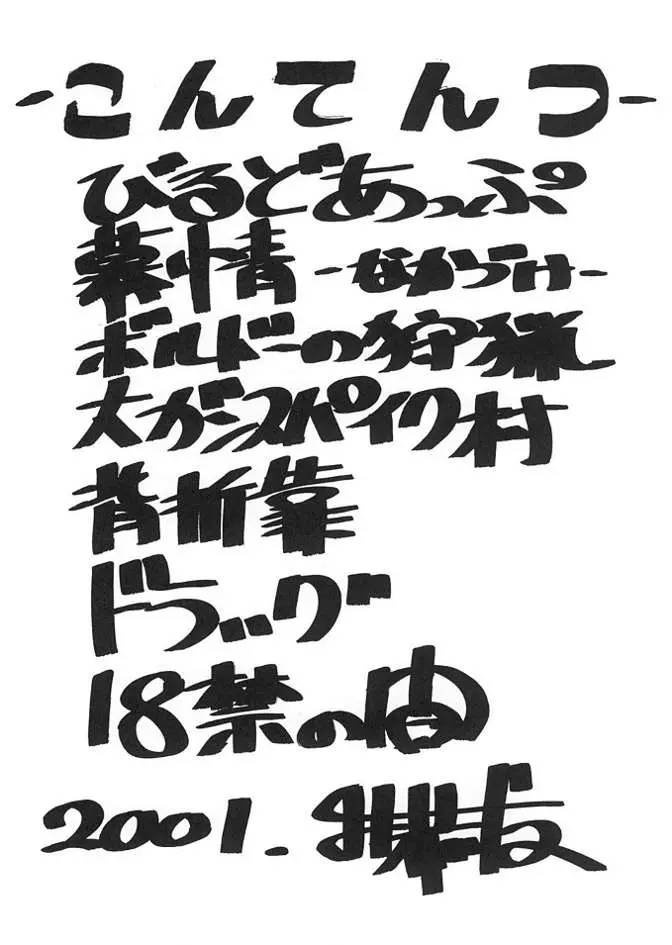 -こんてんつ-
びるどあっぷ
慕情 -なかづけ-
ボルドーの狩猟
犬ガスパイク村
背折靠
ドラッグ
18禁の由
2001.